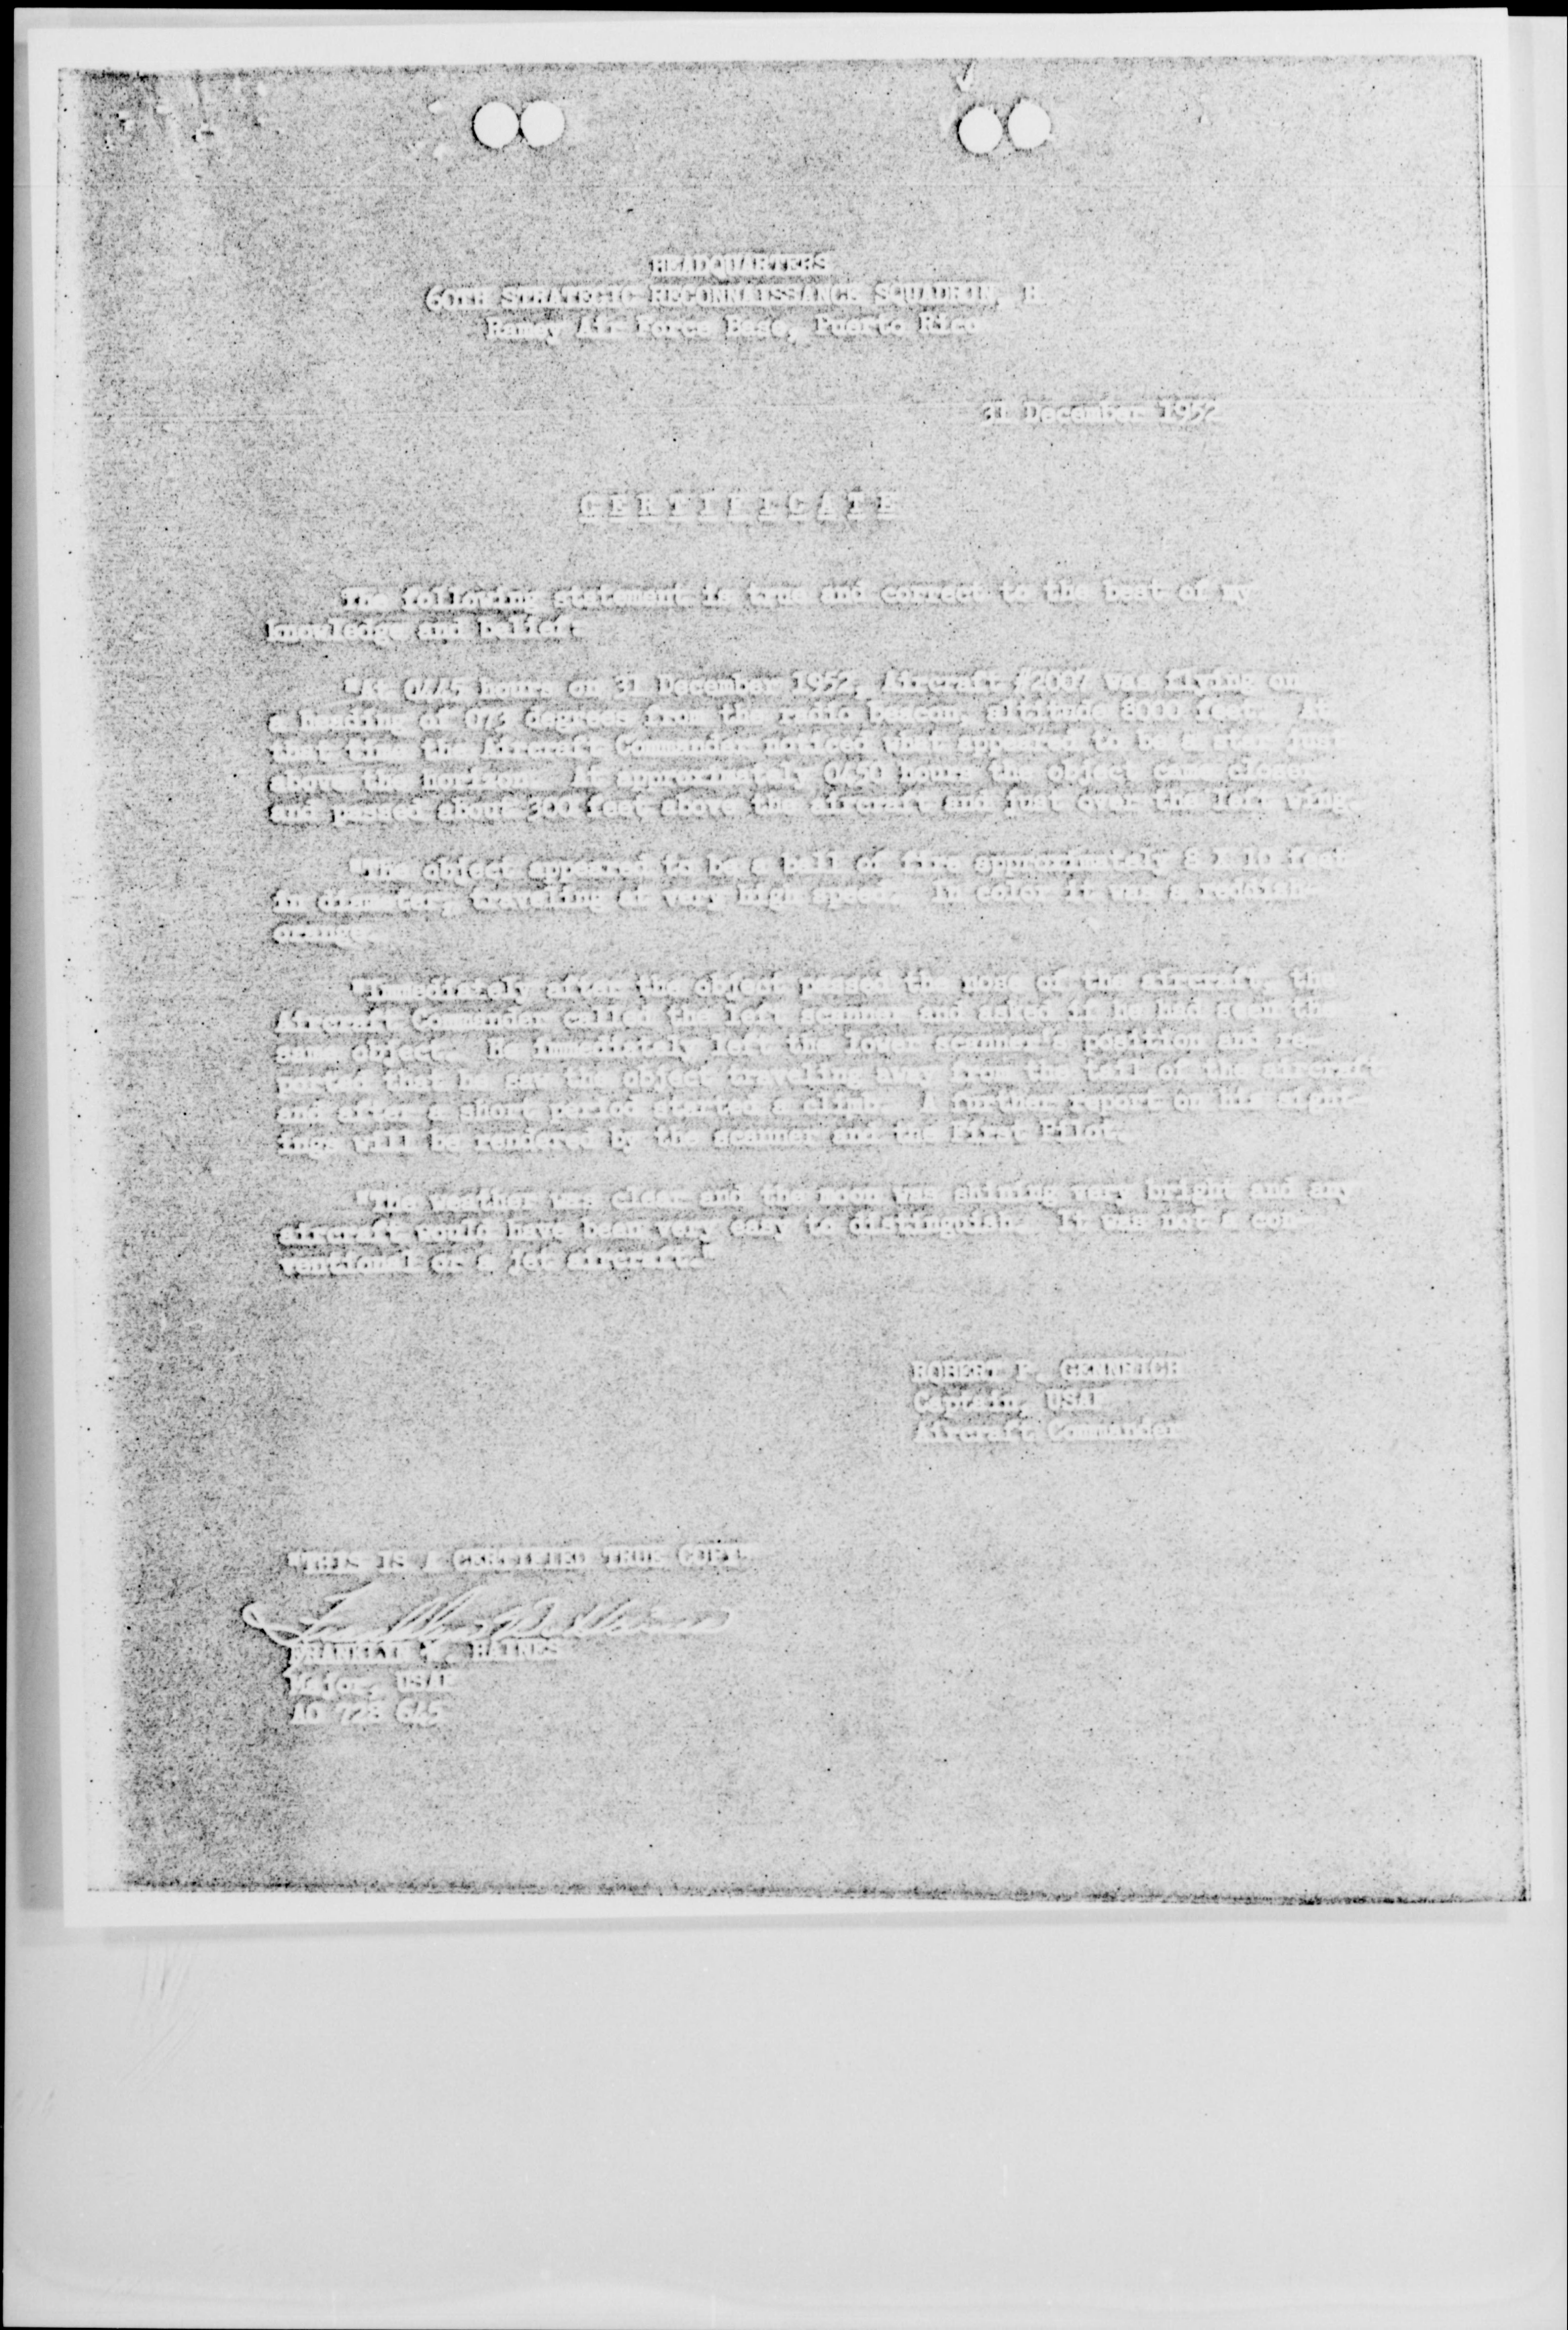 HEADQUARTERS
60TH STRATEGIC RECONNAISSANCE SQUADRON, H
Ramey Air Force Base, Puerto Rico
31 December 1952
CERTIFICATE
The following statement is true and correct to the best of my
knowledge and belief:
"At 0445 hours on 31 December 1952, Aircraft #2007 was flying on
a heading of 073 degrees from the radio beacon, altitude 8000 feet. At
that time the Aircraft Commander noticed what appeared to be a star just
above the horizon. At approximately 0450 hours the object came closer
and passed about 300 feet above the aircraft and just over the left wing.
"The object appeared to be a ball of fire approximately 8 X 10 feet
in diameter, travelling at very high speed. In color it was a reddish
orange.
"Immediately after the object passed the nose of the aircraft, the
Aircraft Commander called the left scanner and asked if he had seen the
same object. He immediately left the lower scanner's position and re-
ported that he saw the object travelling away from the tail of the aircraft
and after a short period started a climb. A further report on his sight-
ings will be rendered by the scanner and the First Pilot.
"The weather was clear and the moon was shining very bright and any
aircraft would have been very easy to distinguish. It was not a con-
ventional or a jet aircraft."
ROBERT P. GENNRICH
Captain, USAF
Aircraft Commander
"THIS IS A CERTIFIED TRUE COPY"
FRANKLYN W. HAINES
Major, USAF
AO 728 645